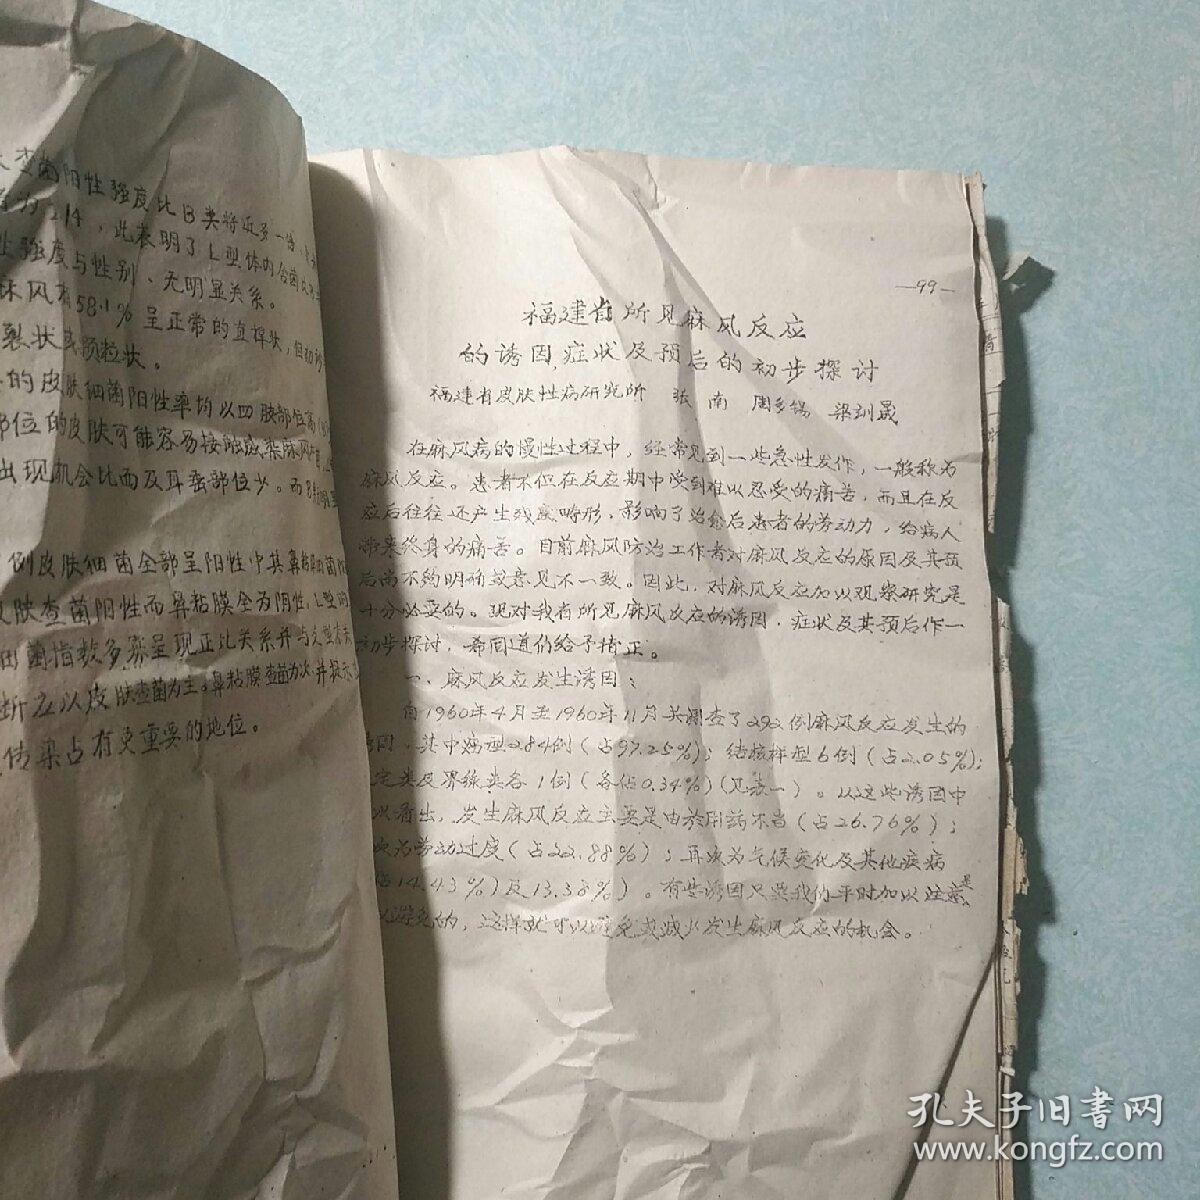 查菌阳性强度比B类将近多一倍
为214，此表明了L型体内含菌
强度与性别、无明显关系。
麻风有58.1%呈正常的直棒状，但
裂状或颗粒状。
的皮肤细菌阳性率均以四肢部位高
部位的皮肤可能容易接触感染麻风
出现机会比面及耳垂部位少。而
例皮肤细菌全部呈阳性中其鼻粘膜
肤查菌阳性而鼻粘膜全为阴性，L型
菌指数多寡呈现正比关系并与
断应以皮肤查菌为主。鼻粘膜查菌为次，并
传染占有更重要的地位。
—99—
福建省所见麻风反应
的诱因，症状及预后的初步探讨
福建省皮肤性病研究所 张 南
在麻风病的慢性过程中，经常见到一些急性发作，一般称为
麻风反应。患者不但在反应期中受到难以忍受的痛苦，而且在反
应后往往还产生残废畸形，影响了治愈后患者的劳动力，给病人
带来终身的痛苦。目前麻风防治工作者对麻风反应的原因及其预
后尚不够明确或意见不一致。因此，对麻风反应加以观察研究是
十分必要的。现对我省所见麻风反应的诱因，症状及其预后作一
初步探讨，希同道们给予指正。
一、麻风反应发生诱因：
自1960年4月至1960年11月共调查了292例麻风反应发生的
诱因，其中瘤型284例（占97.25%）；结核样型6例（占2.05%）；
定类及界线类各1例（各佔0.34%）（见表一）。从这些诱因中
以看出，发生麻风反应主要是由於用药不当（占26.76%）；
次为劳动过度（占22.88%）；再次为气候变化及其他疾病
14.43%）及13.38%）。有些诱因只要我们平时加以注意是
以避免的，这样就可以避免或减少发生麻风反应的机会。
孔夫子旧书网
www.kongfz.com